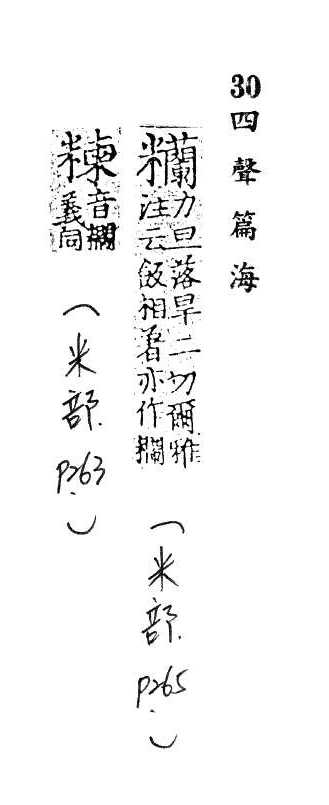 30四聲篇海
糷力旦落旱二切爾雅
注云飯相著亦作
（米部.p265.）
音
義同
（米部.p263.）